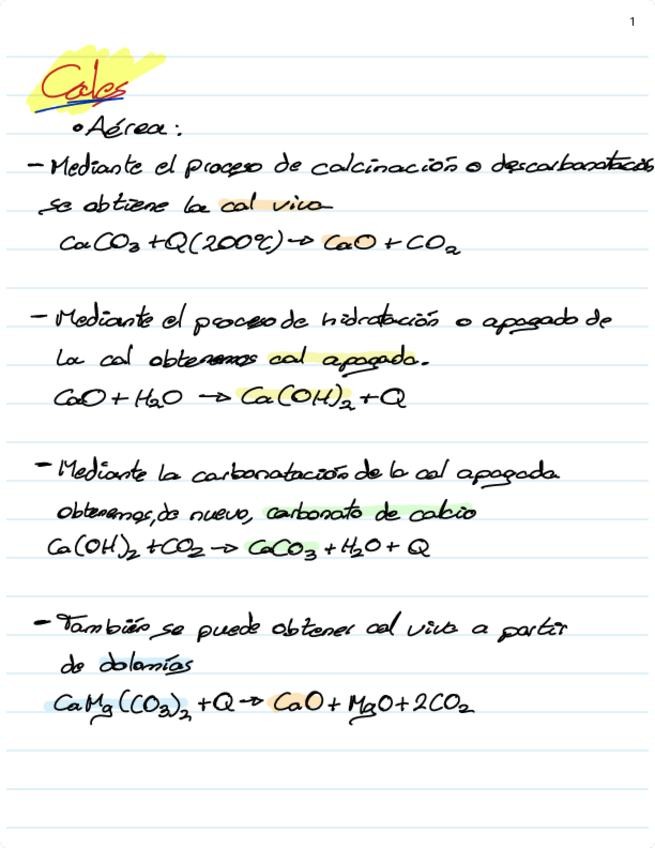 1
Cales
• Aérea:
- Mediante el proceso de calcinación o descarbonatación
se obtiene la cal viva
CaCO₃ + Q (200ºC) → CaO + CO₂
- Mediante el proceso de hidratación o apagado de
la cal obtenemos cal apagada.
CaO + H₂O → Ca(OH)₂ + Q
- Mediante la carbonatación de la cal apagada
obtenemos, de nuevo, carbonato de calcio
Ca(OH)₂ + CO₂ → CaCO₃ + H₂O + Q
- También se puede obtener cal viva a partir
de dolomías
CaMg(CO₃)₂ + Q → CaO + MgO + 2CO₂